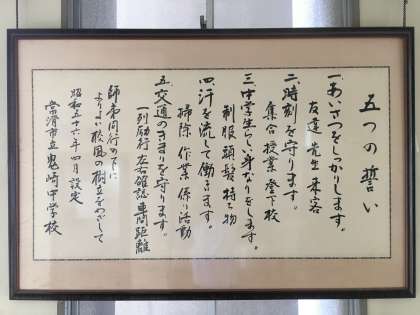 五つの誓い
一、あいさつをしっかりします。
友達 先生 来客
二、時刻を守ります。
集合 授業 登下校
三、中学生らしい身なりをします。
制服 頭髪 持ち物
四、汗を流して働きます。
掃除 作業 係り活動
五、交通のきまりを守ります。
一列励行 左右確認 車間距離
師弟同行の下に
よりよい校風の樹立をめざして
昭和五十六年四月設定
常滑市立鬼崎中学校